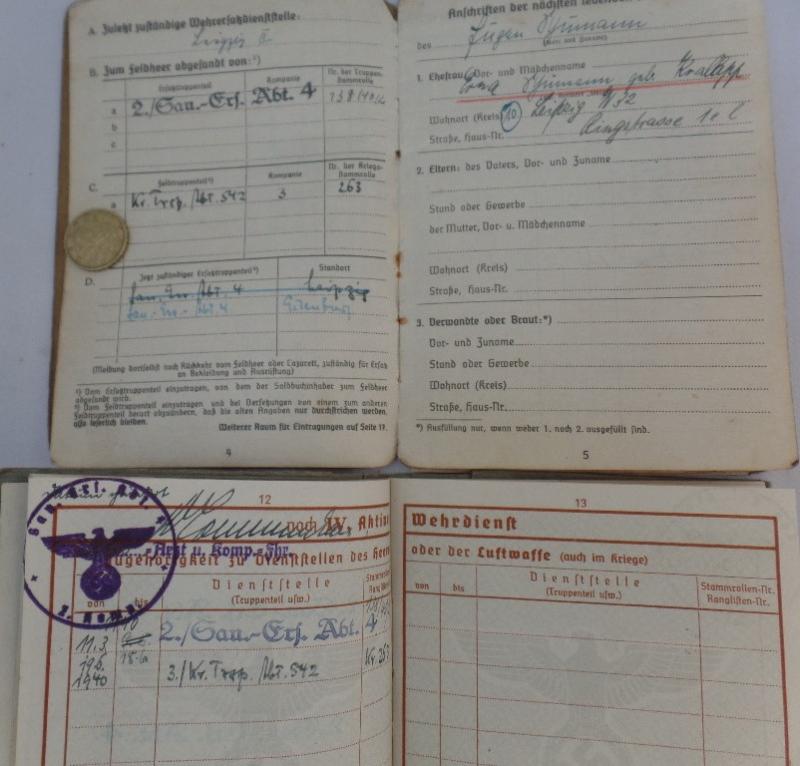 A. Zuletzt zuständige Wehrersatzdienststelle:
Leipzig II
B. Zum Feldheer abgesandt von:¹)
Ersatztruppenteil
Kompanie
Nr. der Truppen-Stammrolle
a 2./San.-Ers. Abt. 4
b
c
C.
Feldtruppenteil²)
Kompanie
Nr. der Kriegs-Stammrolle
a Kr. Trsp. Abt. 542 3 263
D.
Jetzt zuständiger Ersatztruppenteil²)
Standort
San. Ers. Abt. 4 Leipzig
San.-Ers.-Abt. 4
(Meldung dortselbst nach Rückkehr vom Feldheer oder Lazarett, zuständig für Ersatz
an Bekleidung und Ausrüstung)
¹) Vom Ersatztruppenteil einzutragen, von dem der Soldbuchinhaber zum Feldheer
abgesandt wird.
²) Vom Feldtruppenteil einzutragen und bei Versetzungen von einem zum anderen
Feldtruppenteil derart abzuändern, daß die alten Angaben nur durchstrichen werden,
also leserlich bleiben.
Weiterer Raum für Eintragungen auf Seite 17.
4
Anschriften der nächsten lebenden
des Eugen Thümann
(Vor- und Zuname)
1. Ehefrau: Vor- und Mädchenname
Thümann geb.
Wohnort (Kreis) 10 Leipzig
Straße, Haus-Nr. Ringstrasse
2. Eltern: des Vaters, Vor- und Zuname
Stand oder Gewerbe
der Mutter, Vor- u. Mädchenname
Wohnort (Kreis)
Straße, Haus-Nr.
3. Verwandte oder Braut:*)
Vor- und Zuname
Stand oder Gewerbe
Wohnort (Kreis)
Straße, Haus-Nr.
*) Ausfüllung nur, wenn weder 1. noch 2. ausgefüllt sind.
5
12
noch IV. Aktiv
-Arzt u. Komp.-Fhr.
Zugehörigkeit zu Dienststellen des Heeres
von
bis
Dienststelle
(Truppenteil usw.)
11.3. 2./San.-Ers. Abt. 4
1940 3./Kr. Trsp. Abt. 542 Kr. 263
13
Wehrdienst
oder der Luftwaffe (auch im Kriege)
von
bis
Dienststelle
(Truppenteil usw.)
Stammrollen-Nr.
Ranglisten-Nr.